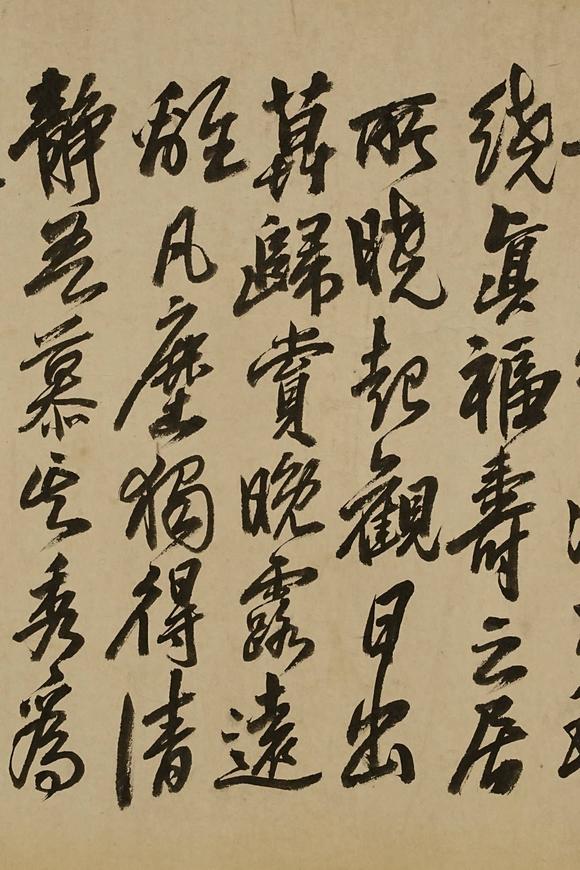 繞眞福壽之居
所曉起觀日出
莫歸賞晚露遠
離凡塵獨得清
靜吾慕其秀為